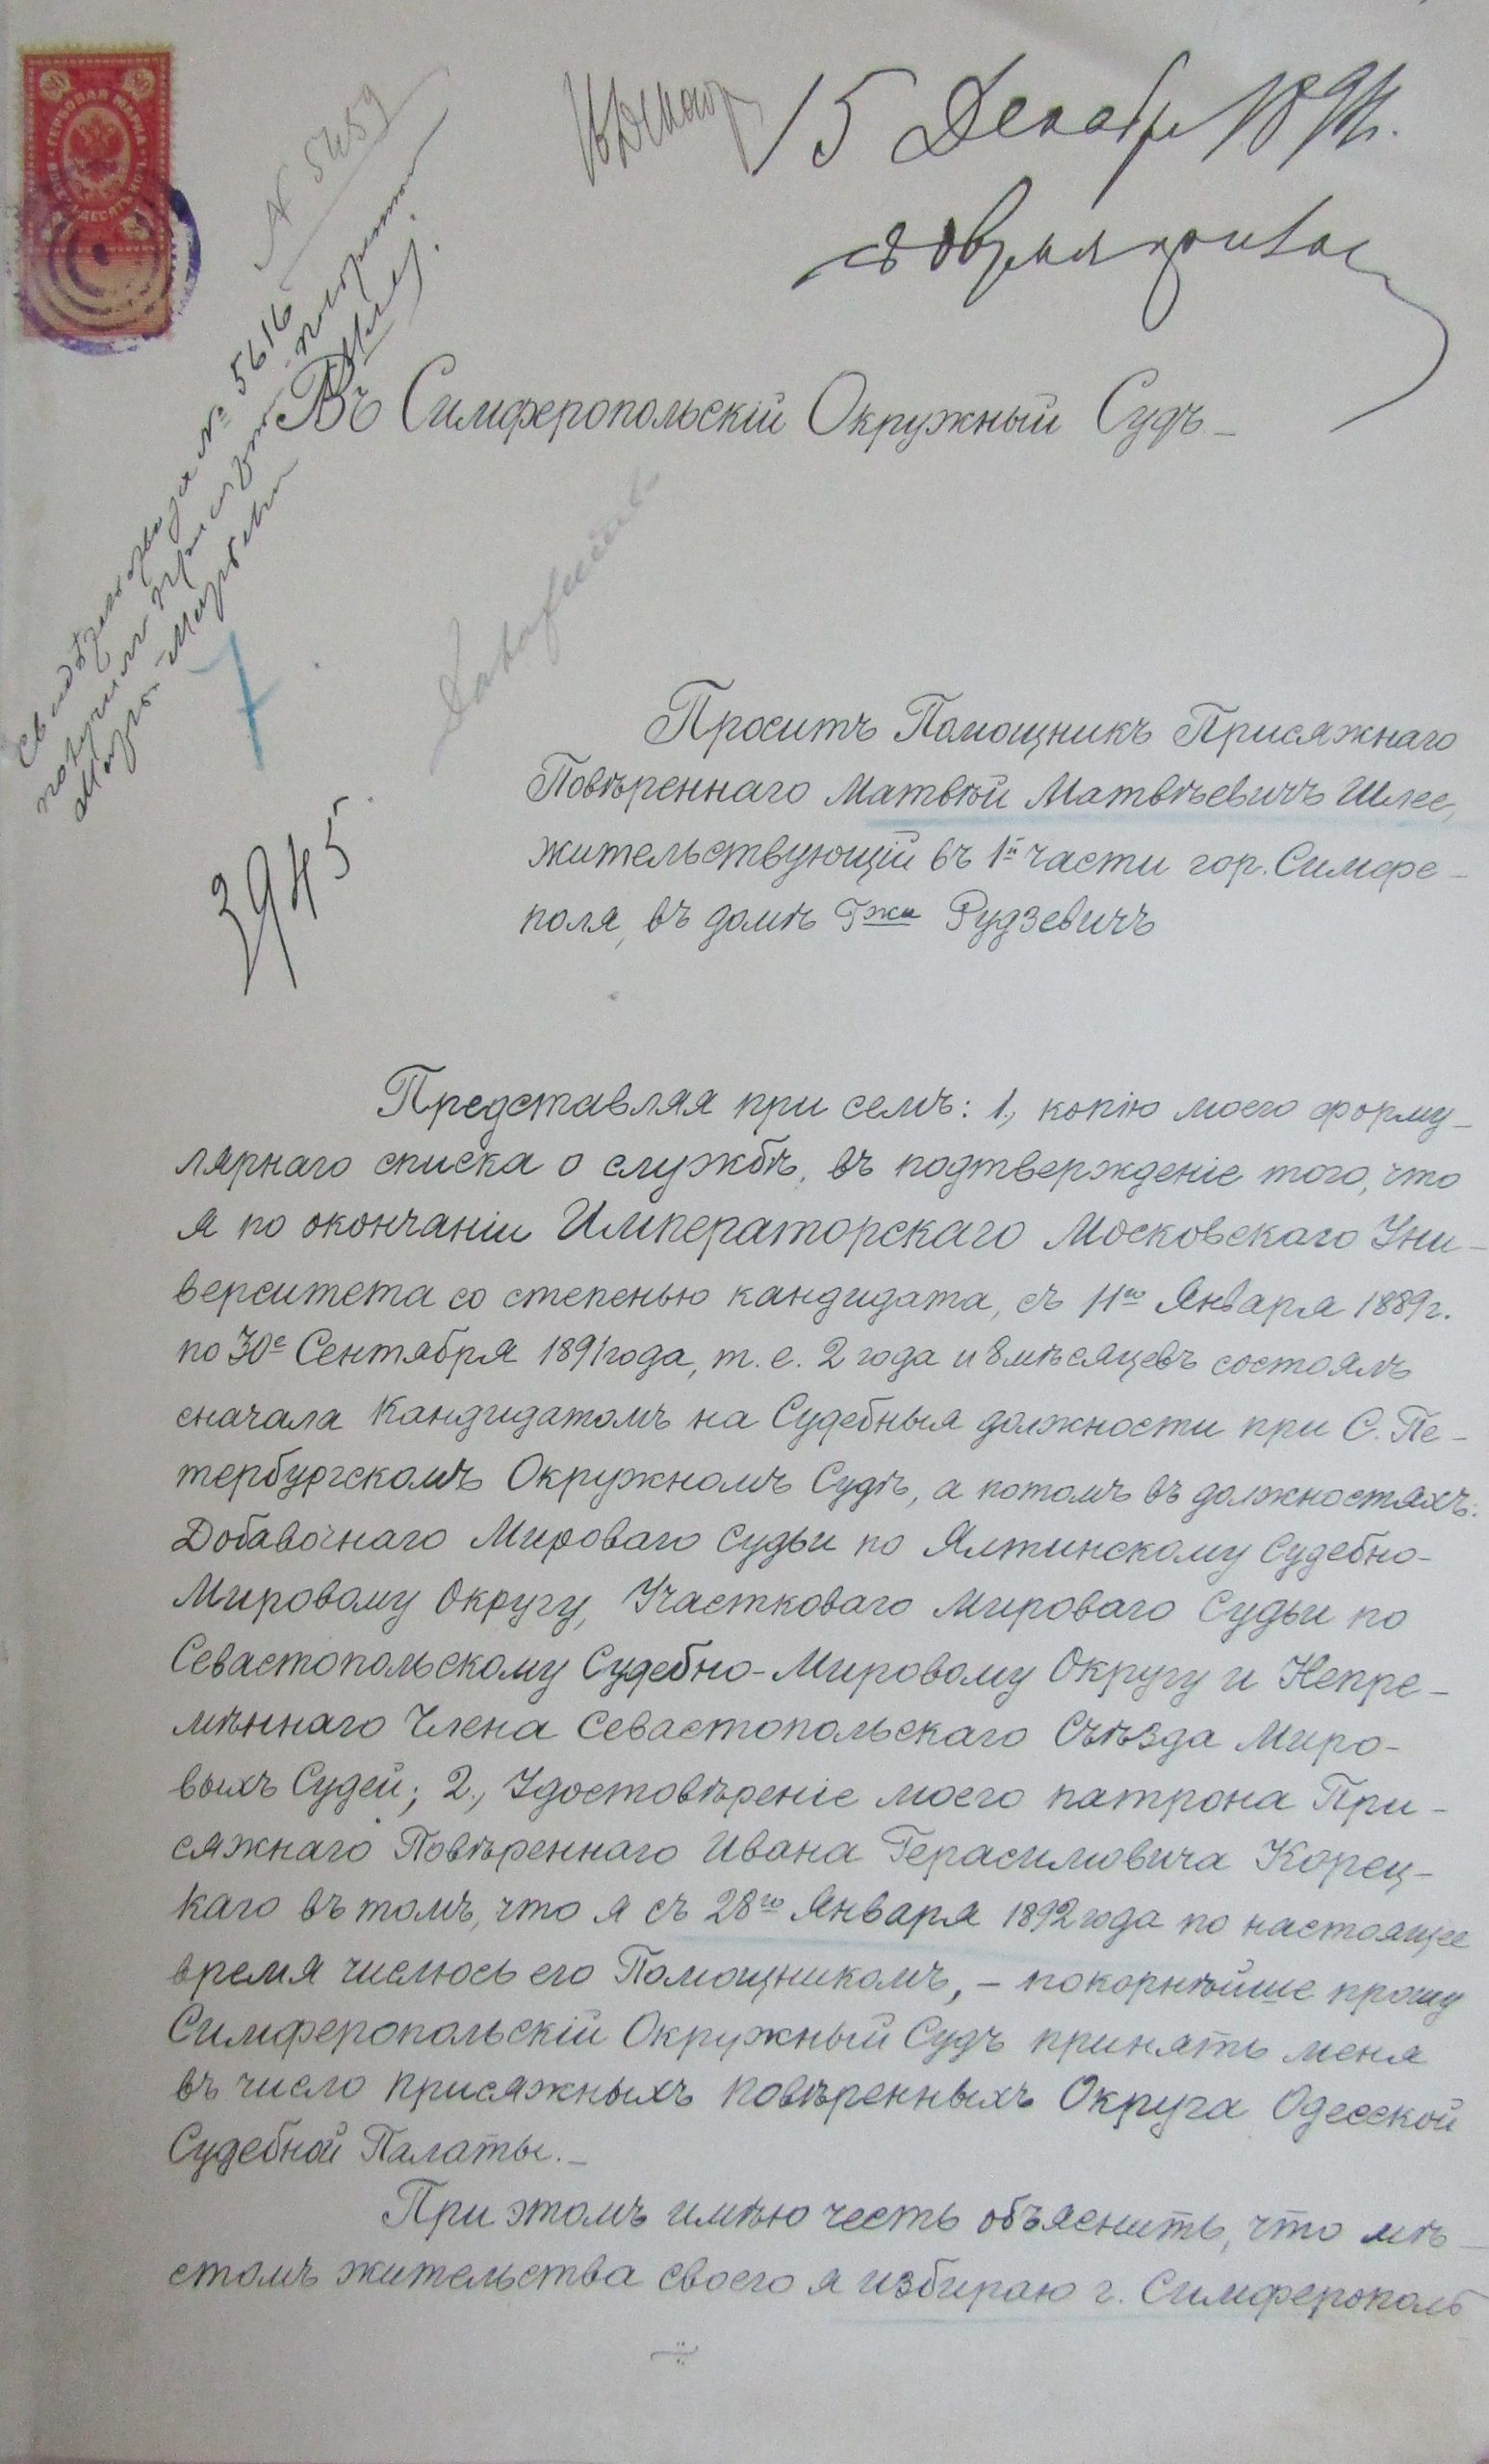 ГЕРБОВАЯ МАРКА
№ 5459
15 Декабр 1894 г.
Въ Симферопольскій Окружный Судъ
№ 5616
7
3945
Проситъ Помощникъ Присяжнаго
Повѣреннаго Матвѣй Матвѣевичъ Шлее,
жительствующій въ 1й части гор. Симфе-
поля, въ домѣ Гжи Рудзевичъ
Представляя при семъ: 1, копію моего форму-
лярнаго списка о службѣ, въ подтвержденіе того, что
я по окончаніи Императорскаго Московскаго Уни-
верситета со степенью кандидата, съ 11го Января 1889 г.
по 30е Сентября 1891 года, т. е. 2 года и 8 мѣсяцевъ состоялъ
сначала Кандидатомъ на Судебныя должности при С. Пе-
тербургскомъ Окружномъ Судѣ, а потомъ въ должностяхъ:
Добавочнаго Мироваго Судьи по Ялтинскому Судебно-
Мировому Округу, Участковаго Мироваго Судьи по
Севастопольскому Судебно-Мировому Округу и Непре-
мѣннаго Члена Севастопольскаго Съѣзда Миро-
выхъ Судей; 2, Удостовѣреніе моего патрона При-
сяжнаго Повѣреннаго Ивана Герасимовича Корец-
каго въ томъ, что я съ 28го Января 1892 года по настоящее
время числюсь его Помощникомъ, - покорнѣйше прошу
Симферопольскій Окружный Судъ принять меня
въ число присяжныхъ повѣренныхъ Округа Одесской
Судебной Палаты. -
При этомъ имѣю честь объяснить, что мѣ-
стомъ жительства своего я избираю г. Симферополь